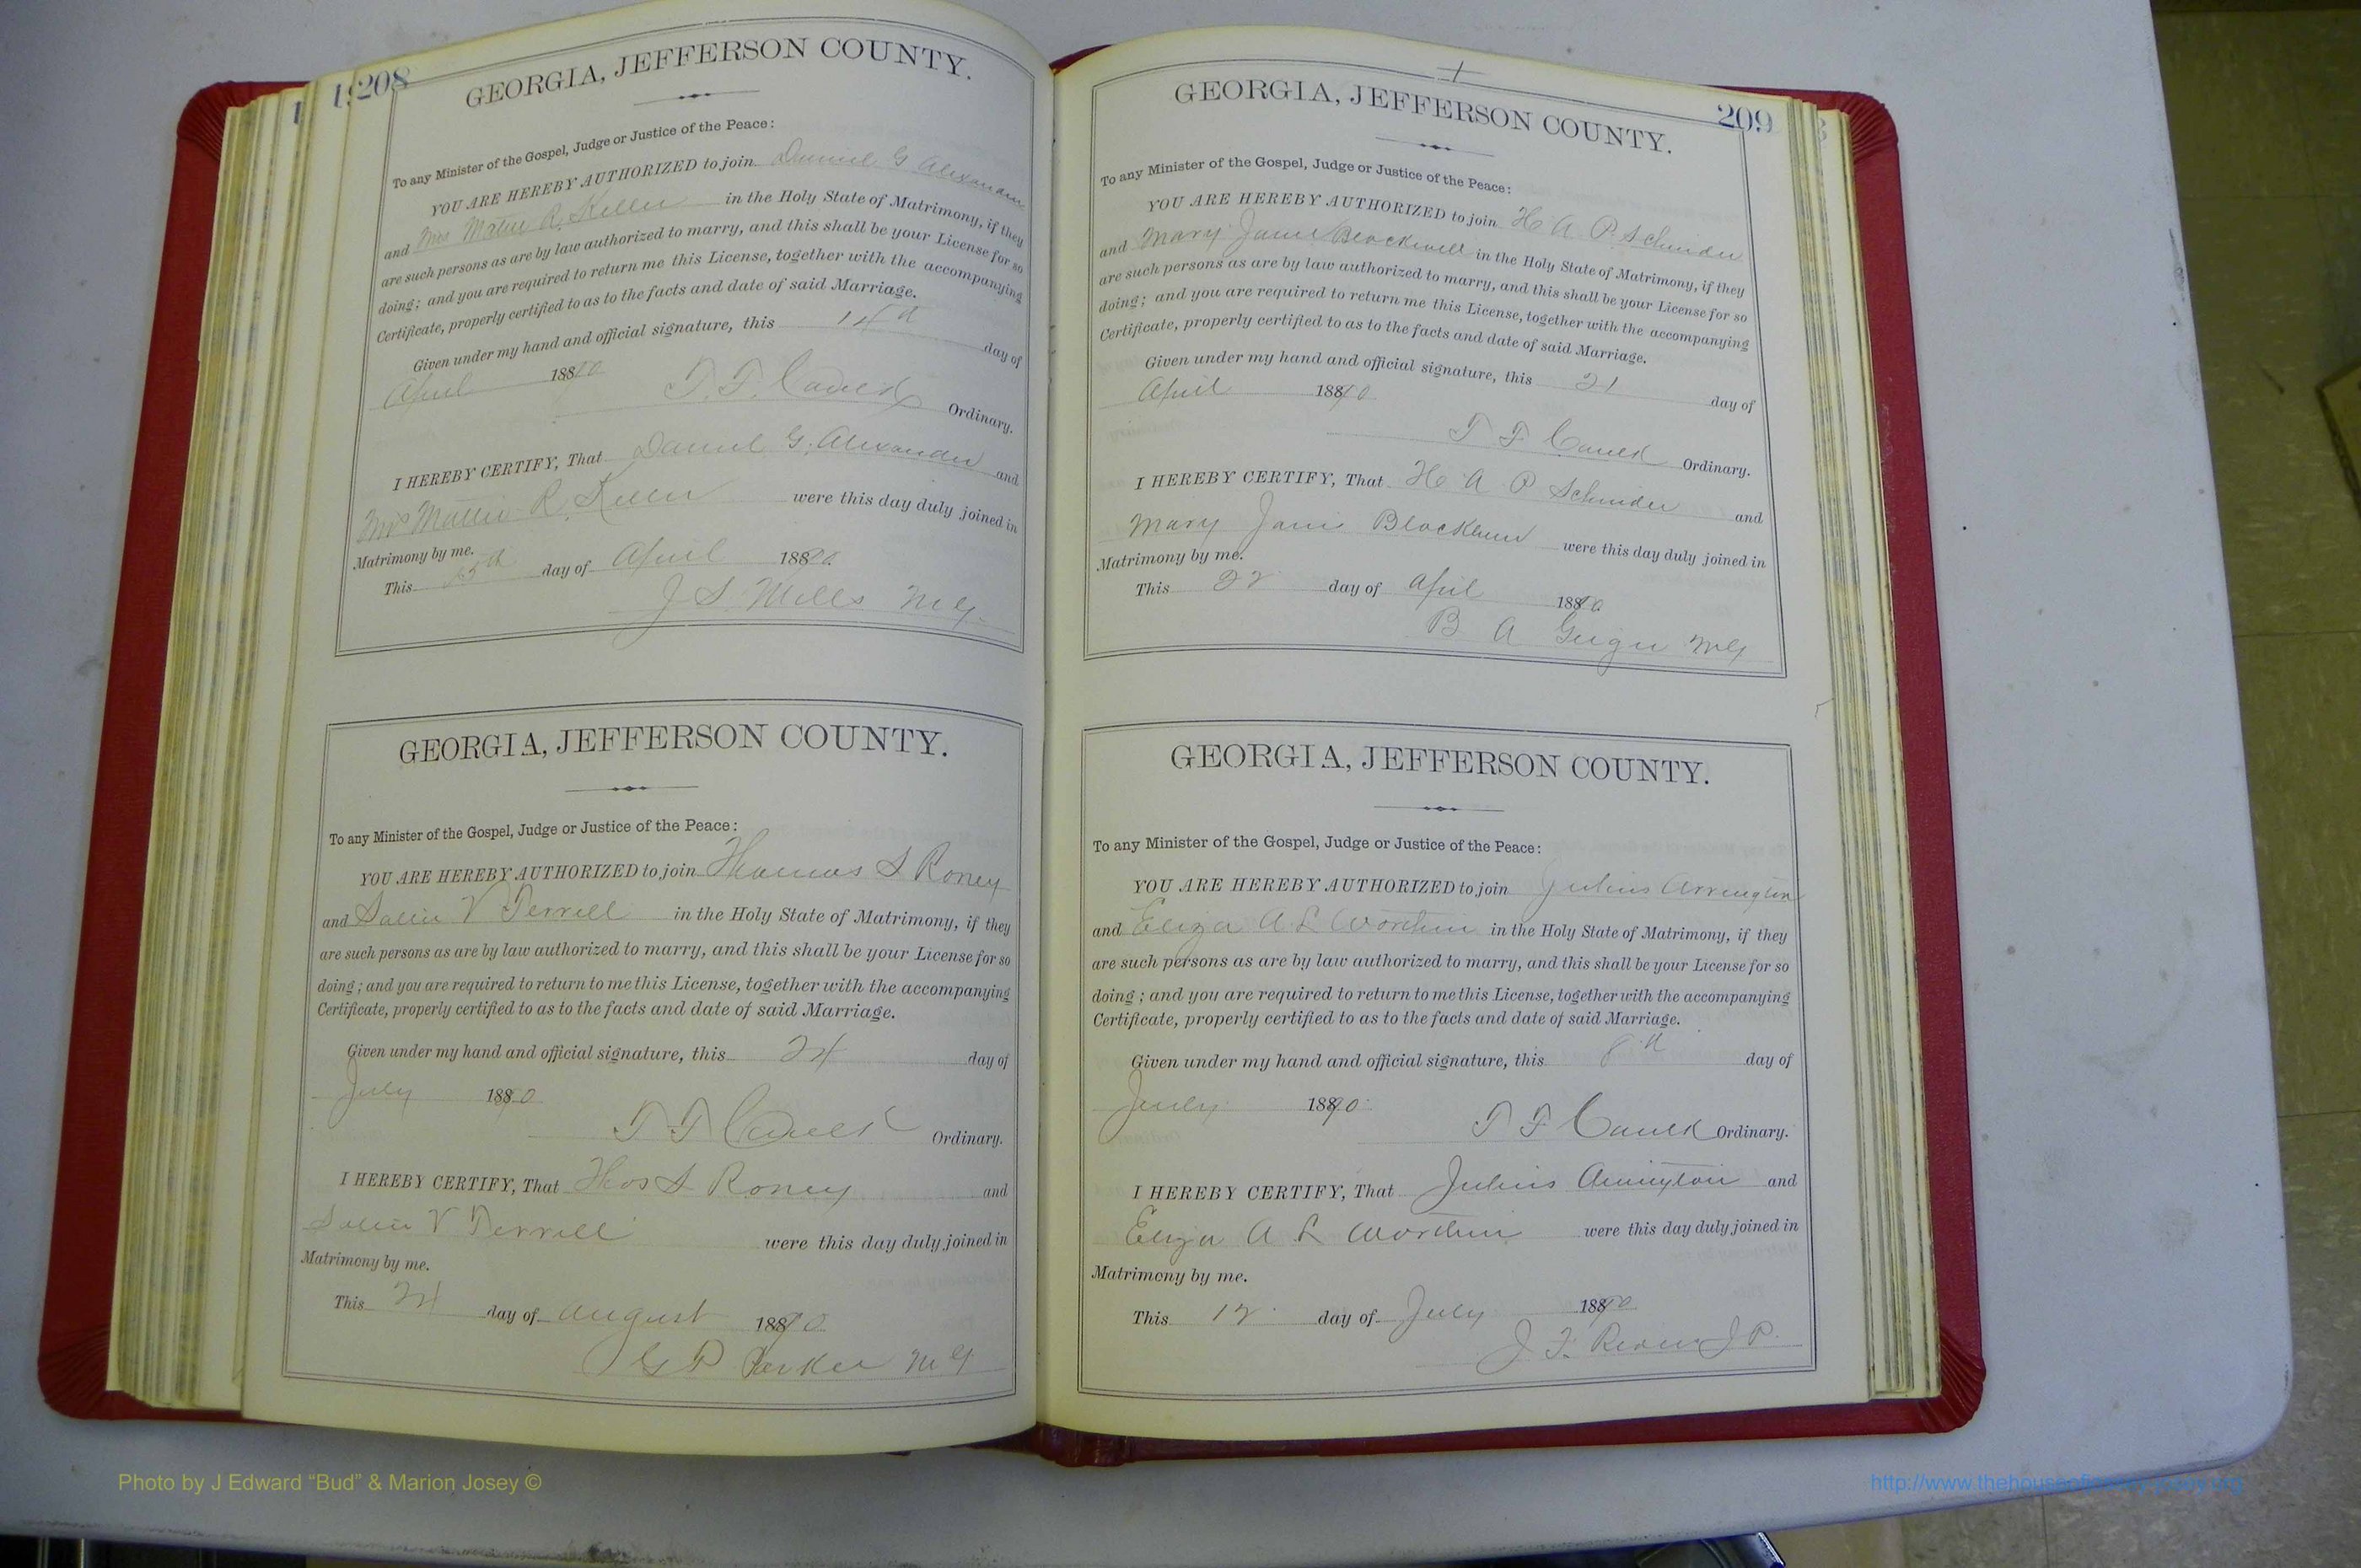 208
GEORGIA, JEFFERSON COUNTY.
To any Minister of the Gospel, Judge or Justice of the Peace:
YOU ARE HEREBY AUTHORIZED to join Daniel G Alexander
and Mrs Mattie R. Keller in the Holy State of Matrimony, if they
are such persons as are by law authorized to marry, and this shall be your License for so
doing; and you are required to return me this License, together with the accompanying
Certificate, properly certified to as to the facts and date of said Marriage.
Given under my hand and official signature, this 14th day of
April 1890
T. F. Caulk Ordinary.
I HEREBY CERTIFY, That Daniel G. Alexander and
Mrs Mattie R. Keller were this day duly joined in
Matrimony by me.
This 15th day of April 1890
J S Mills MG
GEORGIA, JEFFERSON COUNTY.
To any Minister of the Gospel, Judge or Justice of the Peace:
YOU ARE HEREBY AUTHORIZED to join Thomas S Roney
and Sallie V Terrell in the Holy State of Matrimony, if they
are such persons as are by law authorized to marry, and this shall be your License for so
doing; and you are required to return to me this License, together with the accompanying
Certificate, properly certified to as to the facts and date of said Marriage.
Given under my hand and official signature, this 24 day of
July 1890
T F Caulk Ordinary.
I HEREBY CERTIFY, That Thos S Roney and
Sallie V Terrell were this day duly joined in
Matrimony by me.
This 24 day of August 1890
G P Parker MG
209
GEORGIA, JEFFERSON COUNTY.
To any Minister of the Gospel, Judge or Justice of the Peace:
YOU ARE HEREBY AUTHORIZED to join H A P Schnider
and Mary Jane Blackwell in the Holy State of Matrimony, if they
are such persons as are by law authorized to marry, and this shall be your License for so
doing; and you are required to return me this License, together with the accompanying
Certificate, properly certified to as to the facts and date of said Marriage.
Given under my hand and official signature, this 21 day of
April 1890
T F Caulk Ordinary.
I HEREBY CERTIFY, That H A P Schnider and
Mary Jane were this day duly joined in
Matrimony by me.
This 22 day of April 1890
B A Geiger MG
GEORGIA, JEFFERSON COUNTY.
To any Minister of the Gospel, Judge or Justice of the Peace:
YOU ARE HEREBY AUTHORIZED to join Julius Arrington
and Eliza A L Worthen in the Holy State of Matrimony, if they
are such persons as are by law authorized to marry, and this shall be your License for so
doing; and you are required to return to me this License, together with the accompanying
Certificate, properly certified to as to the facts and date of said Marriage.
Given under my hand and official signature, this 8th day of
July 1890
T F Caulk Ordinary.
I HEREBY CERTIFY, That Julius Arrington and
Eliza A L Worthen were this day duly joined in
Matrimony by me.
This 12 day of July 1890
J F JP
Photo by J Edward “Bud” & Marion Josey ©